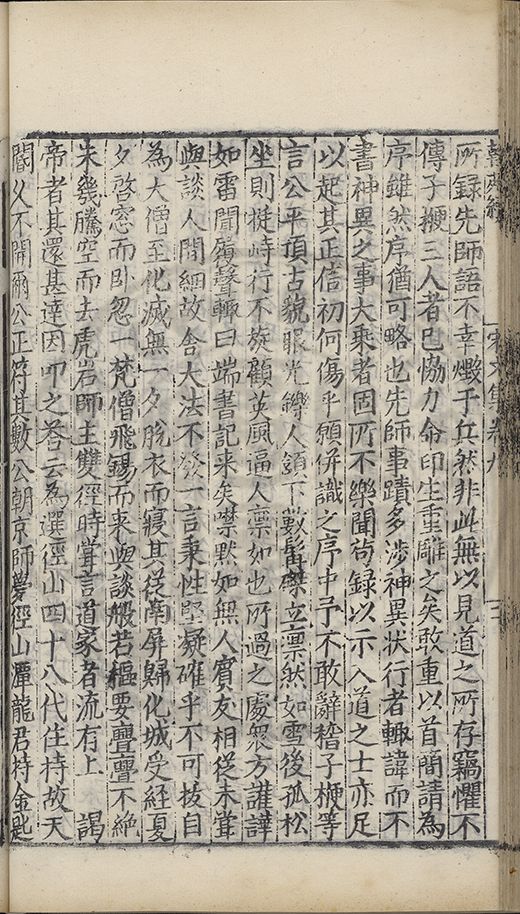 所録先師語不幸燬于兵然非此無以見道之所存竊懼不
傳子楩三人者已恊力命印生重雕之矣敢重以首簡請為
序雖然序猶可略也先師事蹟多涉神異状行者輙諱而不
書神異之事大乘者固所不樂聞尚録以示入道之士亦足
以起其正信初何傷乎願併識之序中予不敢辭稽子楩等
言公平頂古貌眼光鑠人頷下數髯磔立凛然如雪後孤松
坐則挺峙行不旋顧英風逼人凛如也所過之處衆方讙譁
如雷聞履聲輙曰端書記来矣噤默如無人賓友相從未甞
與談人間細故舍大法不發一言秉性堅凝確乎不可拔自
為大僧至化滅無一夕脫衣而寢其從南屏歸化城受經夏
夕啓窓而卧忽一梵僧飛錫而来與談般若樞要亹亹不絶
未幾騰空而去虎岩師主雙徑時甞言道家者流有上 謁
帝者其還甚遲因叩之荅云為選徑山四十八代住持故天
閽久不開爾公正符其數公朝京師夢徑山潭龍君持金匙